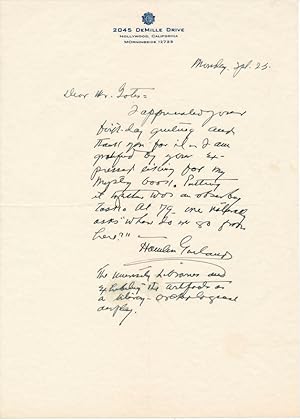 2045 DeMille Drive
Hollywood, California
MOrningside 12723
Monday, Sept. 25.
Dear Mr.
I appreciated your
birthday greeting and
thank you for it. I am
gratified by your ex-
pressed liking for my
Mystery book. Putting
it together was an
task. At 79 one
asks "where do we go from
here?"
Hamlin Garland
The University Libraries and
exhibiting the
a library
display.